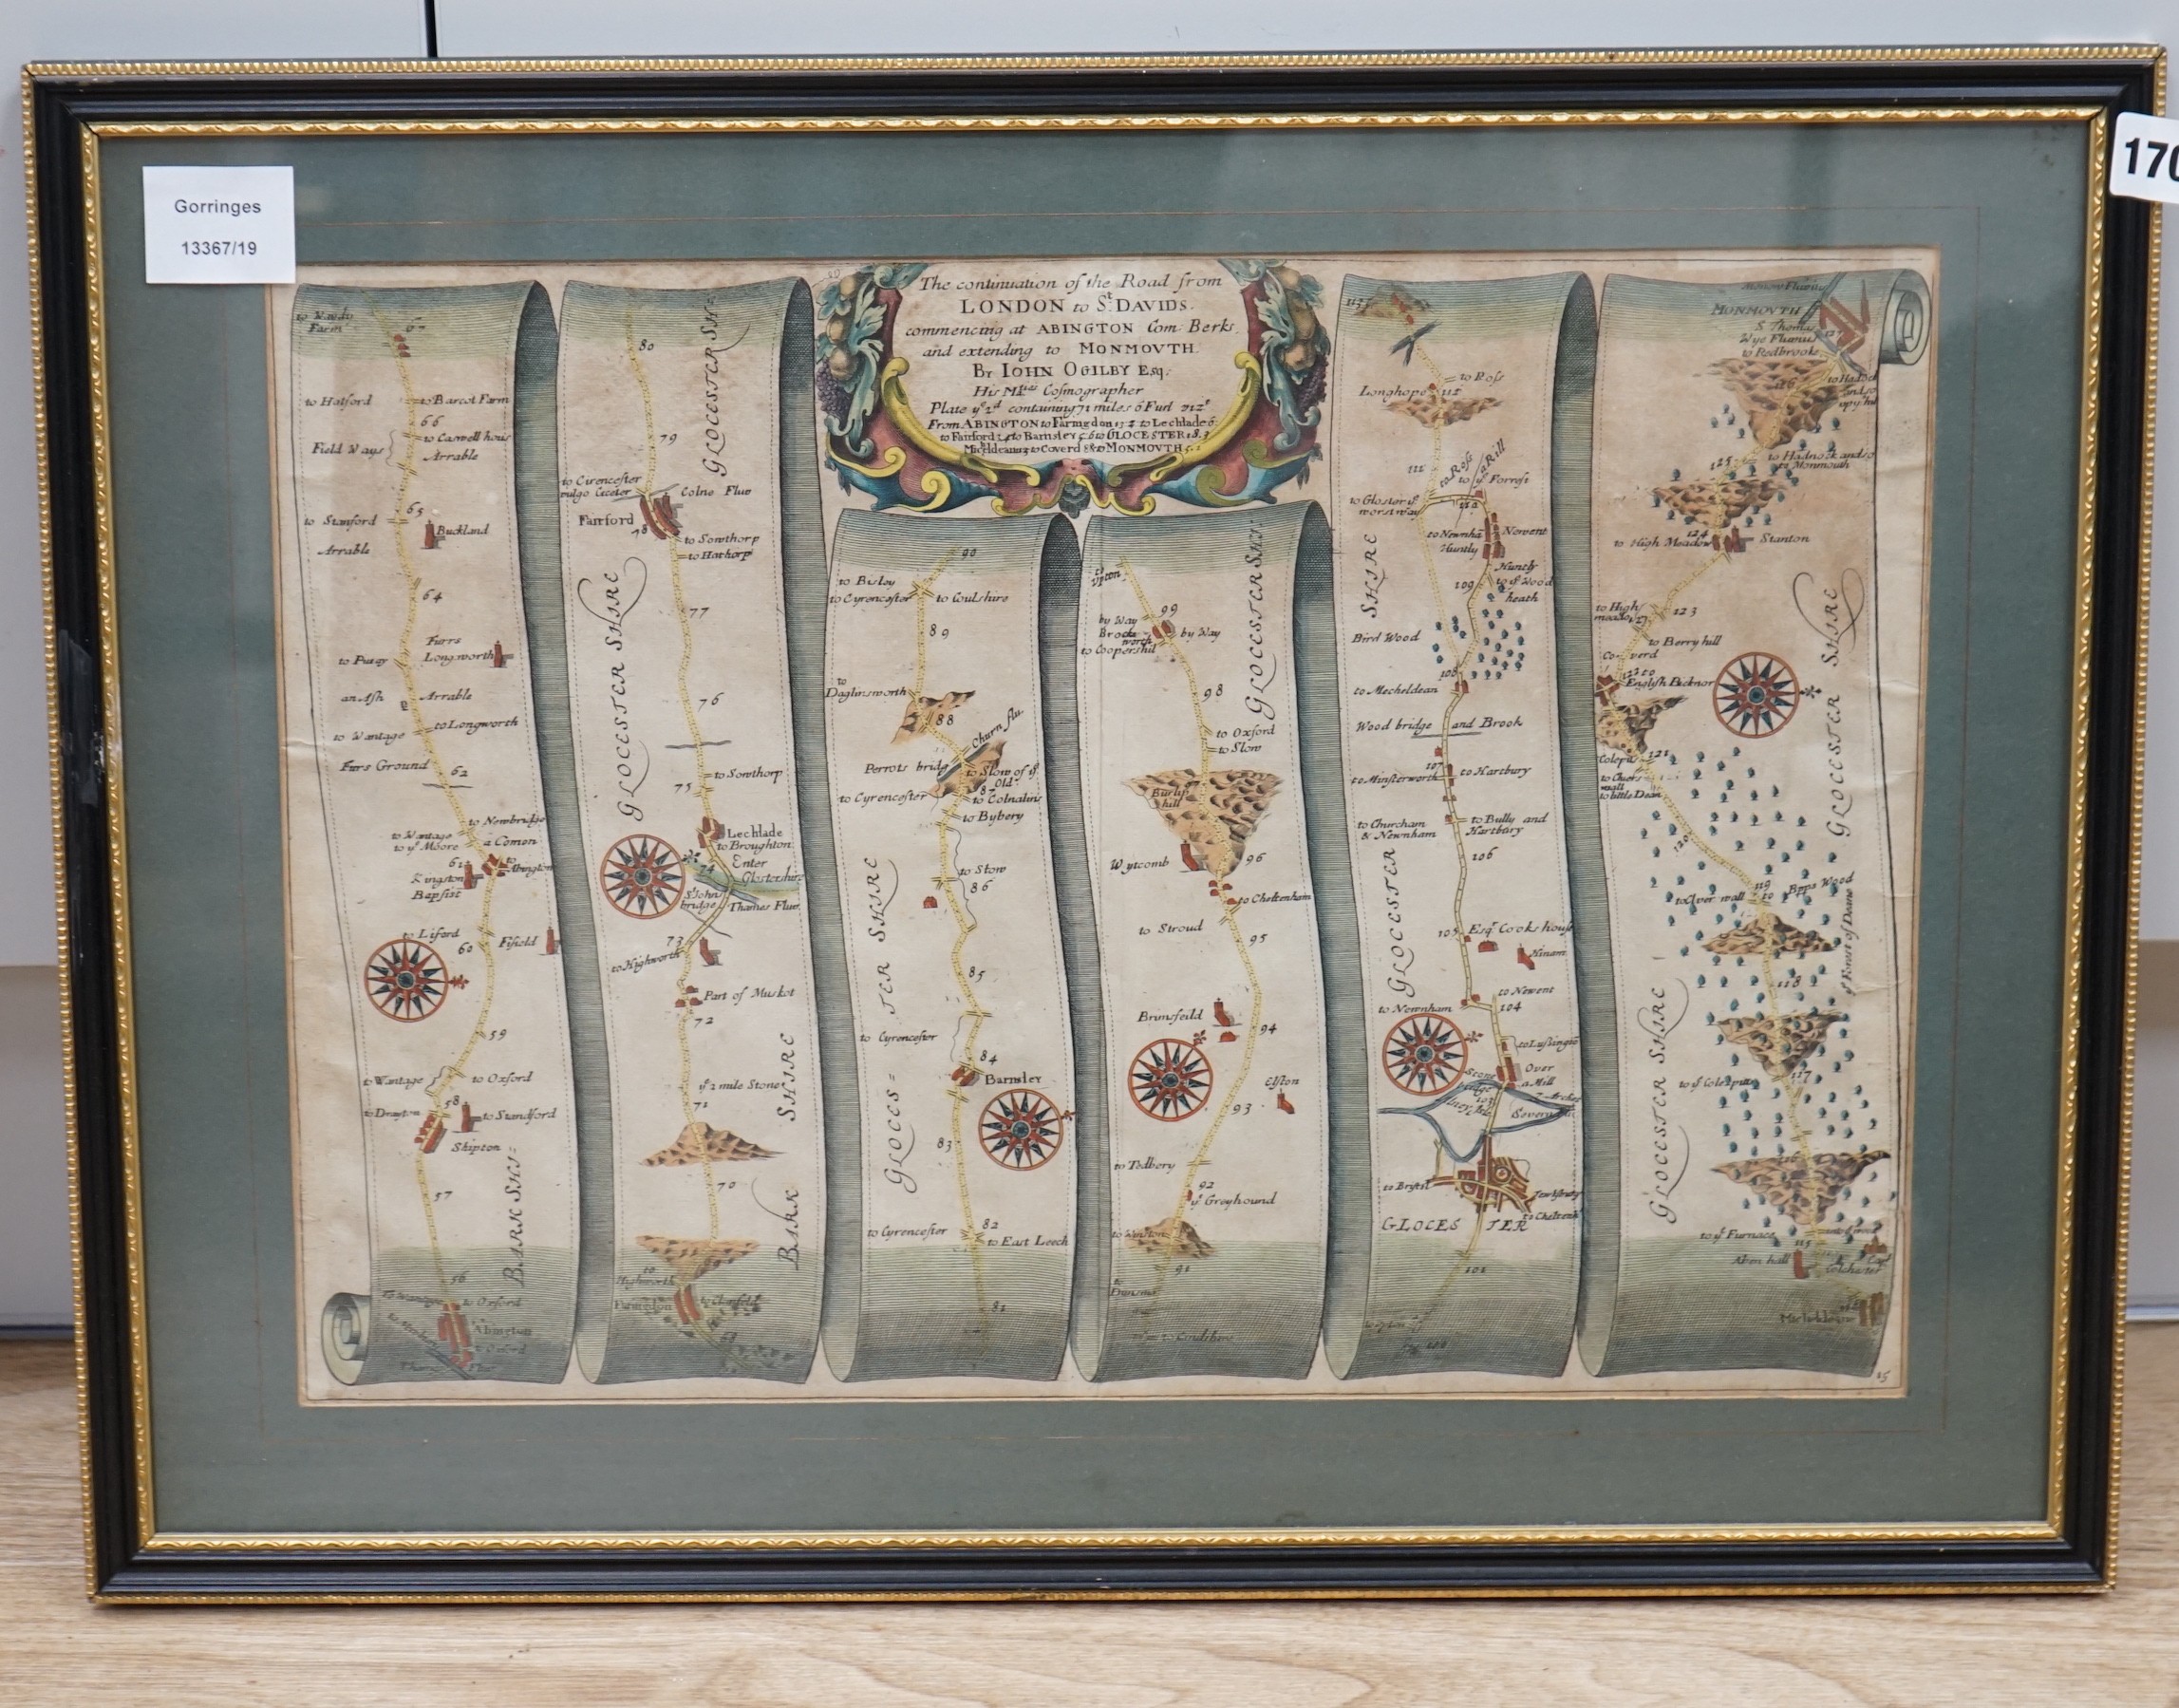 Gorringes
13367/19
170
The continuation of the Road from
LONDON to St. DAVIDS.
commencing at ABINGTON Com: Berks.
and extending to MONMOVTH.
By IOHN OGILBY Esq:
His Maties Cosmographer
Plate ye 2d containing 71 miles 6 Furl
From ABINGTON to Faringdon to Lechlade 6
to Fairford to Barnsley to GLOCESTER 18.3
to Coverd to MONMOVTH
Farm
67
to Hatford
to Barcot Farm
66
Field Ways
to Caswell hous
Arrable
65
to Stanford
Buckland
Arrable
64
Furrs
Longworth
to Pusey
an Ash
Arrable
to Longworth
to Wantage
Furs Ground
62
to Newbridge
to Wantage
a Comon
to ye Moore
61
to Abington
Kingston
Baptist
to Liford
60
Fifield
59
to Wantage
to Oxford
58
to Drayton
to Standford
Shipton
57
BARK SHI=
56
to Oxford
Abington
80
GLOCESTER SHI=
79
to Cirencester
vulgo Ciceter
Colne Fluv
Fairford
78
to Sowthorp
to Hathorp
GLOCESTER SHIRE
77
76
to Sowthorp
75
Lechlade
to Broughton
Enter
Glostershire
74
St John
bridge
Thames Fluv
73
to Highworth
Part of Muskot
72
ye 2 mile Stone
71
BARK SHIRE
70
69
to
Highworth
Faringdon
68
90
to Bisley
to Cyrencester
to Coulshire
89
to
Daglinsworth
88
Churn flu.
Perrots bridg
to Stow of ye
Old
87
to Cyrencester
to Colnalins
to Bybery
to Stow
86
85
to Cyrencester
84
Barnsley
83
GLOCES=TER SHIRE
82
to Cyrencester
to East Leech
81
to
Upton
99
by Way
Brockworth
by Way
to Coopershil
GLOCESTER SHI=
98
to Oxford
to Slow
Burlip
hill
Wytcomb
96
to Cheltenham
to Stroud
95
Brimsfeild
94
Elston
93
to Tedbery
92
ye Greyhound
to Winston
91
113
to Ross
Longhope
112
111
to Ross
a Rill
to ye Forrest
to Gloster ye
worst way
110
to Newnha
Huntly
Newent
Huntly
109
to ye Wood
heath
SHIRE
Bird Wood
108
to Mecheldean
Wood bridge and Brook
107
to Minsterworth
to Hartbury
to Churcham
& Newnham
to Bully and
Hartbury
106
GLOCESTER
105
Esqr Cooks hous
Hinam
to Newent
to Newnham
104
to Lassington
Over
a Mill
Stone
bridge
103
Severn
to Bristol
Tewksbury
to Cheltenh
GLOCESTER
101
100
MONMOVTH
St Thomas
Wye Fluvius
to Redbrooke
127
126
to Hadnock and so
to Monmouth
125
124
to High Meadow
Stanton
to High
meadow
123
to Berry hill
Coverd
122
to
English Bicknor
GLOCESTER SHIRE
121
Colepit
to little Dean
120
119
to Epps Wood
to Over wall
ye Forest of Deane
118
117
to ye Colepitts
116
GLOCESTER SHIRE
to ye Furnace
115
Aben hall
15